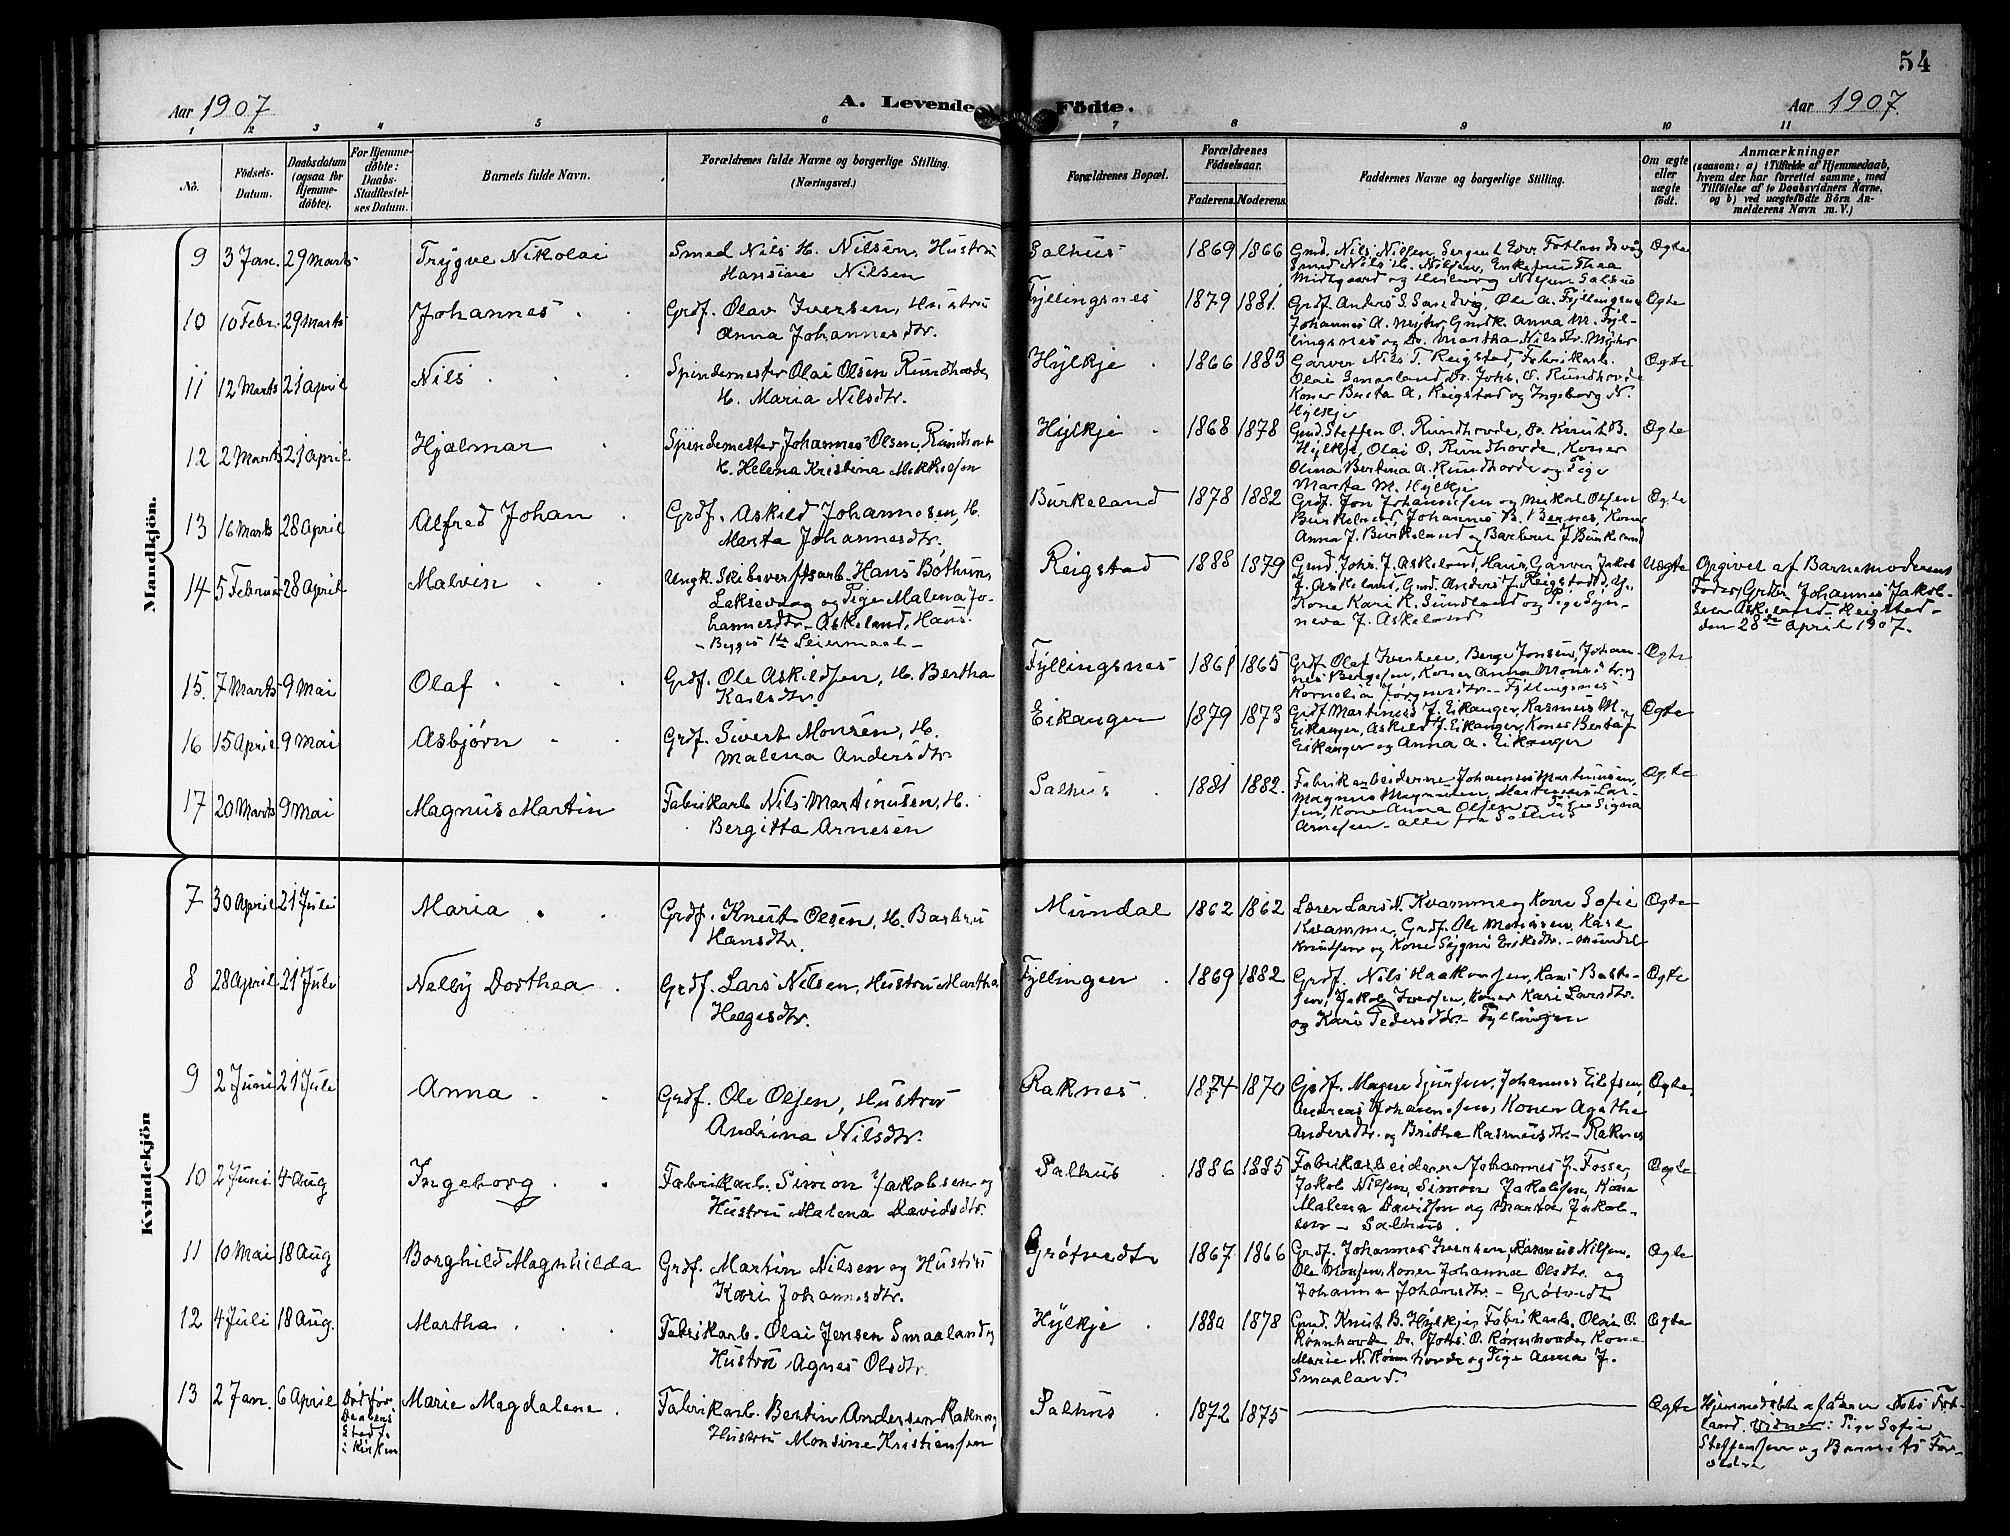 54
Aar 1907 A. Levende Födte. Aar 1907.
1 2 3 4 5 6 7 8 9 10 11
No. Födsels-Datum. Daabsdatum (ogsaa for Hjemme-döbte). For Hjemme-döbte: Daabs-Stadfæstel-ses Datum. Barnets fulde Navn. Forældrenes fulde Navne og borgerlige Stilling. (Næringsvei.) Forældrenes Bopæl. Forældrenes Födselsaar. Faderens. Moderens. Faddernes Navne og borgerlige Stilling. Om ægte eller uægte födt. Anmærkninger
(saasom: a) i Tilfælde af Hjemmedaab, hvem der har forrettet samme, med Tilföielse af to Daabsvidners Navne, og b) ved uægtefödte Börn Anmelderens Navn m. V.)
Mandkjön.
9 3 Jan. 29 Marts Trygve Nikolai Smed Nils H. Nilsen, Hustru Salhus 1869 1866 Gmd. Nils Nilsen, Sergent Edv. Fotlandsvåg Ægte
Hansine Nilsen Smed Nils H. Nilsen, Enkefru Thea
Midtgaard og Nilsen Salhus
10 10 Febr. 29 Marts Johannes Grdf. Olav Iversen, Hustru Fyllingsnes 1879 1881 Grdf. Anders S. Sandvig, Ole A. Fyllingsnes Ægte
Anna Johannesdtr. Johannes A. Gmdk. Anna M. Fyl-
lingsnes og Do. Martha Nilsdtr.
11 12 Marts 21 April Nils Spindemester Olai Olsen Rundhovde Hylkje 1866 1883 Garver Nils T. Reigstad, Fabrikarb. Ægte
H. Maria Nilsdtr. Olai Smaaland, Do. Johs. O. Rundhovde
Koner Berta A. Reigstad og Ingeborg N.
Hylkje
12 2 Marts 21 April Hjalmar Spindemester Johannes Olsen Rundhovde Hylkje 1868 1878 Gmd. Steffen O. Rundhovde, Do. Knut B. Ægte
H. Helena Kristena Mikkelsen Hylkje, Olai O. Rundhovde, Koner
Olina Bertina A. Rundhovde og Pige
Marta M. Hylkje
13 16 Marts 28 April Alfred Johan Grdf. Askild Johannesen, H. Burkeland 1878 1882 Grdf. Jon Johannesen og Mikal Olsen Ægte
Marta Johannesdtr. Burkeland, Johannes B. Bernes, Koner
Anna J. Burkeland og Barbra J. Burkeland
14 5 Februar 28 April Malvin Ungk. Skibsverftsarb. Hans Böthun, Reigstad 1888 1879 Gmd. Johs. J. Askeland, Haus, Garver Jakob Uægte Opgivet af Barnemoderens
Laksevaag og Pige Malena Jo- J. Askeland, Gmd. Anders J. Reigstad, Fader, Grdbr. Johannes Jakob-
hannesdtr. Askeland, Haus. Kone Kari K. Sundland og Pige Syn- sen Askeland-Reigstad
- Begges 1ste Leiermaal - neva J. Askeland den 28de April 1907.
15. 7 Marts 9 Mai Olaf Grdf. Ole Askildsen, H. Bertha Fyllingsnes 1861 1865 Grdf. Olaf Iversen, Berge Jonsen, Johan- Ægte
Karlsdtr. nes Bergesen, Koner Anna Monsdtr. og
Kornelia Jørgensdtr. - Fyllingsnes
16 15 April 9 Mai Asbjørn Grdf. Sivert Monsen, H. Eikanger 1879 1873 Grdf. Martinus J. Eikanger, Rasmus M. Ægte
Malena Andersdtr. Eikanger, Askild J. Eikanger, Koner Berta J.
Eikanger og Anna A. Eikanger
17 20 Marts 9 Mai Magnus Martin Fabrikarb. Nils Martinusen, H. Salhus 1881 1882. Fabrikarbeiderne Johannes Martinusen, Ægte
Bergitta Arnesen Magnus Magnusen, Martinus Lar-
sen, Kone Anna Olsen og Pige Signa
Arnesen - alle fra Salhus
Kvindekjön
7 30 April 21 Juli Maria Grdf. Knut Olsen, H. Barbru Mundal 1862 1862 Lærer Lars N. Kvamme og Kone Sofie Ægte
Hansdtr. Kvamme, Grdf. Ole Monsen, Karl
Knutsen og Kone Sygni Eriksdtr. - Mundal
8 28 April 21 Juli Nelly Dorthea Grdf. Lars Nilsen, Hustru Martha Fyllingen 1869 1882 Grdf. Nils Haakonsen, Hans Ægte
Helgesdtr. sen, Jakob Iversen, Koner Kari Larsdtr.
og Kari Pedersdtr. - Fyllingen
9 2 Juni 21 Juli Anna Grdf. Ole Olsen, Hustru Raknes 1874 1870 Grdf. Magne Sjursen, Johannes Eilefsen Ægte
Andrina Nilsdtr. Andreas Johannesen, Koner Agatha
Andersdtr. og Britha Rasmusdtr. - Raknes
10 2 Juni 4 Aug Ingeborg Fabrikarb. Simon Jakobsen og Salhus 1886 1885 Fabrikarbeiderne Johannes J. Fosse, Ægte
Hustru Malena Davidsdtr. Jakob Nilsen, Simon Jakobsen, Kone
Malena Davidsen og Marta Jakob-
sen - Salhus.
11 10 Mai 18 Aug Borghild Magnhilda Grdf. Martin Nilsen og Hustru Grötvedt 1867 1866 Grdf. Johannes Iversen, Rasmus Nilsen, Ægte
Kari Johannesdtr. Ole Monsen, Koner Johanna Olsdtr. og
Johanna Johansdtr. - Grötvedt
12 4 Juli 18 Aug. Martha Fabrikarb. Olai Jensen Smaaland og Hylkje 1880 1878 Gmd. Knut B. Hylkje, Fabrikarb. Olai O. Ægte
Hustru Agnes Olsdtr. Rønnhovde, Do. Johs. O. Rønnhovde, Kone
Marie N. Rønnhovde og Pige Anna J.
Smaaland.
13 2 Jan. 6 April Död før Daabens Stadf. i Kirken Marie Magdalene Fabrikarb. Bertin Andersen Raknes og Salhus 1872 1875 Ægte Hjemmedöbt af
Hustru Monsine Kristiensen land. Vidner: Pige Sofie
Steffensen og Barnets For-
ældre